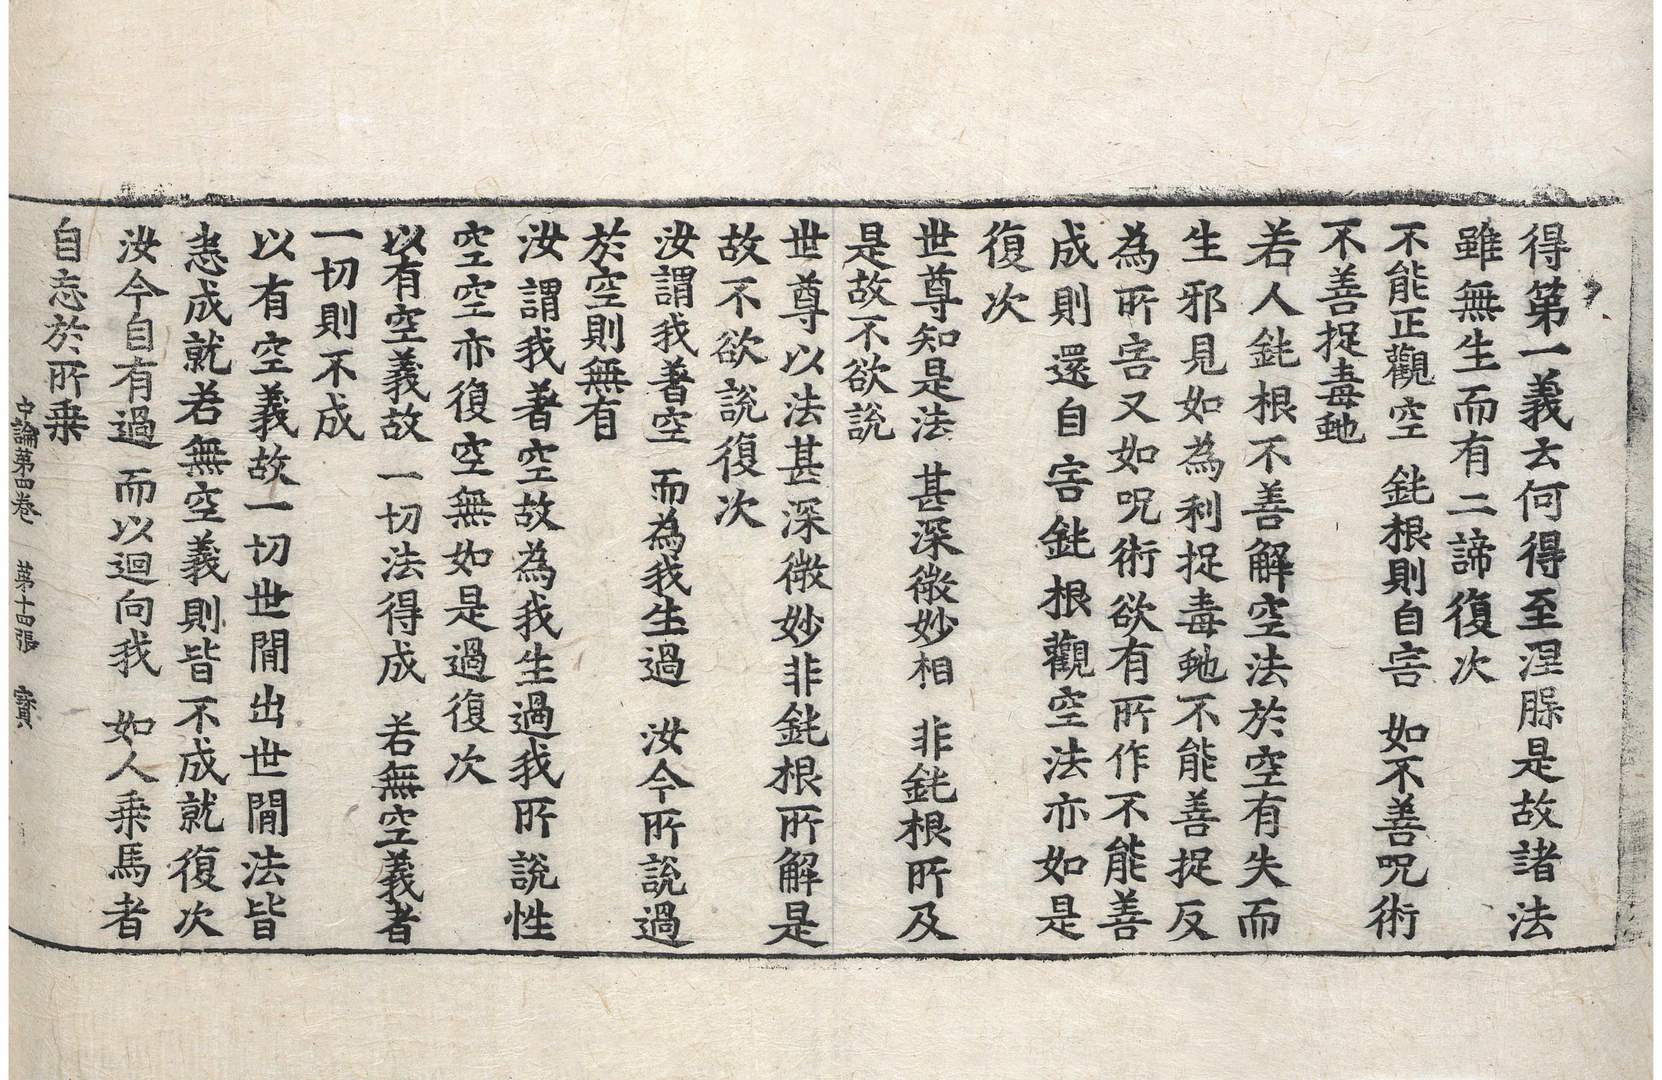 得第一義云何得至涅槃是故諸法
雖無生而有二諦復次
不能正觀空 鈍根則自害 如不善呪術
不善捉毒虵
若人鈍根不善解空法於空有失而
生邪見如為利捉毒虵不能善捉反
為所害又如呪術欲有所作不能善
成則還自害鈍根觀空法亦如是
復次
世尊知是法 甚深微妙相 非鈍根所及
是故不欲説
世尊以法甚深微妙非鈍根所解是
故不欲説復次
汝謂我著空 而為我生過 汝今所説過
於空則無有
汝謂我著空故為我生過我所説性
空空亦復空無如是過復次
以有空義故 一切法得成 若無空義者
一切則不成
以有空義故一切世間出世間法皆
悉成就若無空義則皆不成就復次
汝今自有過 而以迴向我 如人乗馬者
自忘於所乗
中論第四卷 第十四張 寳